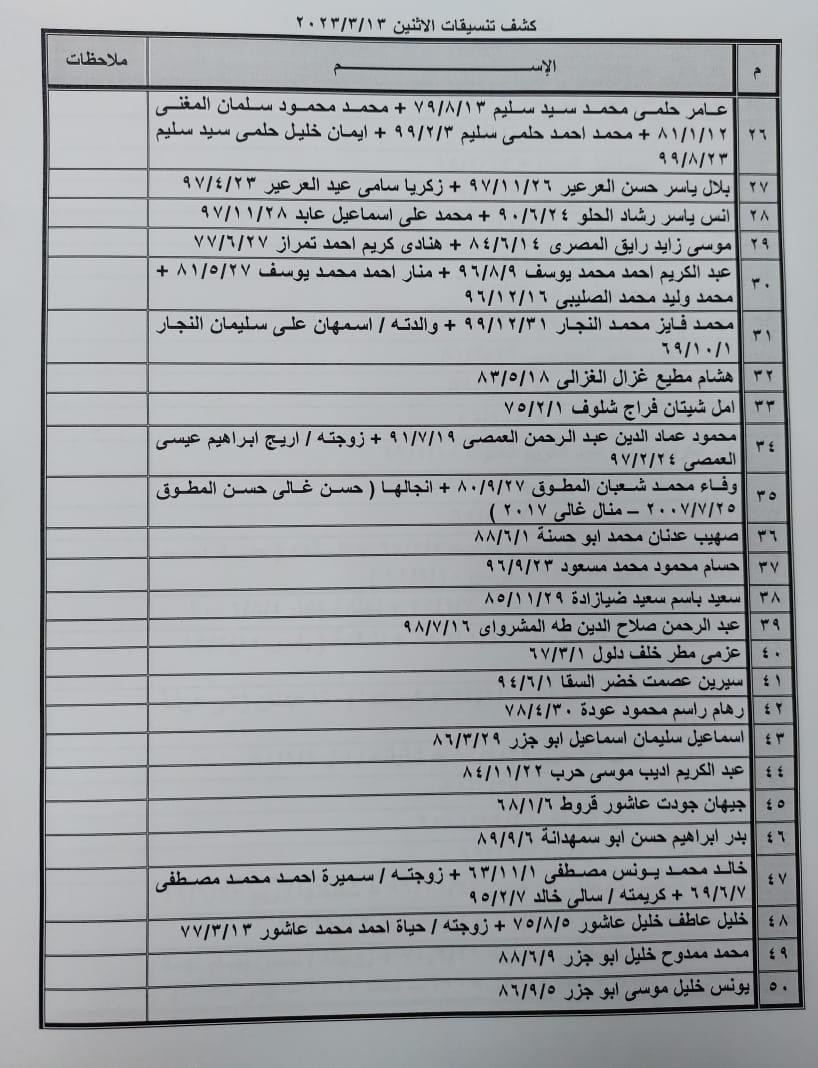 كشف تنسيقات الاثنين ٢٠٢٣/٣/١٣
م الإســــــــــــم ملاحظات
٢٦ عـامر حلمـى محمـد سـيد سـليم ٧٩/٨/١٣ + محمـد محمـود سـلمان المغنـى
٨١/١/١٢ + محمد احمد حلمى سليم ٩٩/٢/٣ + ايمـان خليل حلمـى سيد سليم
٩٩/٨/٢٣
٢٧ بلال ياسر حسن العرعير ٩٧/١١/٢٦ + زكريا سامى عيد العرعير ٩٧/٤/٢٣
٢٨ انس ياسر رشاد الحلو ٩٠/٦/٢٤ + محمد على اسماعيل عابد ٩٧/١١/٢٨
٢٩ موسى زايد رايق المصرى ٨٤/٦/١٤ + هنادى كريم احمد تمراز ٧٧/٦/٢٧
٣٠ عبد الكريم احمد محمد يوسف ٩٦/٨/٩ + منار احمد محمـد يوسـف ٨١/٥/٢٧ +
محمد وليد محمد الصليبى ٩٦/١٢/١٦
٣١ محمـد فـايز محمـد النجـار ٩٩/١٢/٣١ + والدتـه / اسـمهان علـى سـليمان النجـار
٦٩/١٠/١
٣٢ هشام مطيع غزال الغزالى ٨٣/٥/١٨
٣٣ امل شيتان فراج شلوف ٧٥/٢/١
٣٤ محمـود عمـاد الدين عبـد الـرحمن العمصـى ٩١/٧/١٩ + زوجتـه / اريـج ابـراهيم عيسـى
العمصى ٩٧/٢/٢٤
٣٥ وفـاء محمـد شـعبان المطـوق ٨٠/٩/٢٧ + انجالهـا ( حسـن غـالى حسـن المطـوق
٢٠٠٧/٧/٢٥ – منال غالى ٢٠١٧ )
٣٦ صهيب عدنان محمد ابو حسنة ٨٨/٦/١
٣٧ حسام محمود محمد مسعود ٩٦/٩/٢٣
٣٨ سعيد باسم سعيد ضيازادة ٨٥/١١/٢٩
٣٩ عبد الرحمن صلاح الدين طه المشرواى ٩٨/٧/١٦
٤٠ عزمى مطر خلف دلول ٦٧/٣/١
٤١ سيرين عصمت خضر السقا ٩٤/٦/١
٤٢ رهام راسم محمود عودة ٧٨/٤/٣٠
٤٣ اسماعيل سليمان اسماعيل ابو جزر ٨٦/٣/٢٩
٤٤ عبد الكريم اديب موسى حرب ٨٤/١١/٢٢
٤٥ جيهان جودت عاشور قروط ٦٨/١/٦
٤٦ بدر ابراهيم حسن ابو سمهدانة ٨٩/٩/٦
٤٧ خالـد محمـد يـونس مصـطفى ٦٣/١١/١ + زوجتـه / سـميرة احمـد محمـد مصـطفى
٦٩/٦/٧ + كريمته / سالى خالد ٩٥/٢/٧
٤٨ خليل عاطف خليل عاشور ٧٥/٨/٥ + زوجته / حياة احمد محمد عاشور ٧٧/٣/١٣
٤٩ محمد ممدوح خليل ابو جزر ٨٨/٦/٩
٥٠ يونس خليل موسى ابو جزر ٨٦/٩/٥